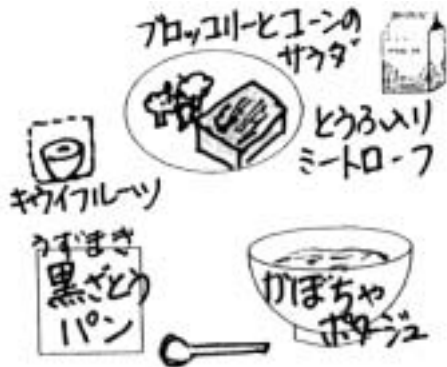 ブロッコリーとコーンの
サラダ
とうふ入り
ミートローフ
キウイフルーツ
うずまき
黒ざとう
パン
かぼちゃ
ポタージュ